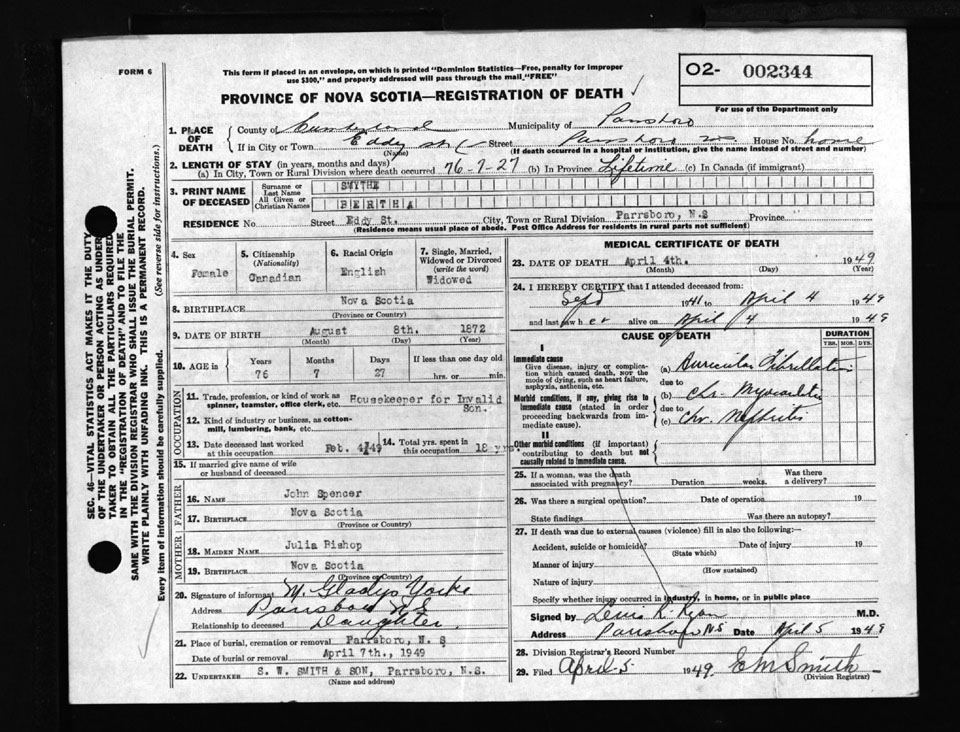 FORM 6
This form if placed in an envelope, on which is printed "Dominion Statistics—Free, penalty for improper
use $300," and properly addressed will pass through the mail "FREE"
O2- 002344
PROVINCE OF NOVA SCOTIA—REGISTRATION OF DEATH
For use of the Department only
1. PLACE OF DEATH
County of Cumberland Municipality of Parrsboro
If in City or Town Eddy st Street Parrsboro N.S. House No. home
(If death occurred in a hospital or institution, give the name instead of street and number)
2. LENGTH OF STAY (in years, months and days)
(a) In City, Town or Rural Division where death occurred 76-7-27 (b) In Province Lifetime (c) In Canada (if immigrant)
3. PRINT NAME OF DECEASED
Surname or Last Name SMYTHE
All Given or Christian Names BERTHA
RESIDENCE No. Street Eddy St. City, Town or Rural Division Parrsboro, N.S Province
(Residence means usual place of abode. Post Office Address for residents in rural parts not sufficient)
4. Sex
Female
5. Citizenship
(Nationality)
Canadian
6. Racial Origin
English
7. Single, Married,
Widowed or Divorced
(write the word)
Widowed
8. BIRTHPLACE Nova Scotia
(Province or Country)
9. DATE OF BIRTH August 8th. 1872
(Month) (Day) (Year)
10. AGE in
Years Months Days If less than one day old
76 7 27 hrs. or min.
OCCUPATION
11. Trade, profession, or kind of work as
spinner, teamster, office clerk, etc. Housekeeper for Invalid
Son.
12. Kind of industry or business, as cotton-
mill, lumbering, bank, etc.
13. Date deceased last worked
at this occupation Feb. 4/49
14. Total yrs. spent in
this occupation 18 yrs.
15. If married give name of wife
or husband of deceased
FATHER
16. NAME John Spencer
17. BIRTHPLACE Nova Scotia
(Province or Country)
MOTHER
18. MAIDEN NAME Julia Bishop
19. BIRTHPLACE Nova Scotia
(Province or Country)
20. Signature of informant M. Gladys Yorke
Address Parrsboro N.S
Relationship to deceased Daughter.
21. Place of burial, cremation or removal Parrsboro, N. S
Date of burial or removal April 7th., 1949
22. UNDERTAKER S. W. SMITH & SON, Parrsboro, N.S.
(Name and address)
MEDICAL CERTIFICATE OF DEATH
23. DATE OF DEATH April 4th. 1949
(Month) (Day) (Year)
24. I HEREBY CERTIFY that I attended deceased from:
Sept 1941 to April 4 1949
and last saw her alive on April 4 1949
CAUSE OF DEATH
DURATION
YRS. MOS. DYS.
I
Immediate cause
Give disease, injury or complica-
tion which caused death, not the
mode of dying, such as heart failure,
asphyxia, asthenia, etc.
(a) Auricular Fibrillation
due to
Morbid conditions, if any, giving rise to
immediate cause (stated in order
proceeding backwards from im-
mediate cause).
(b) Chr. Myocarditis
due to
(c) Chr. Nephritis
II
Other morbid conditions (if important)
contributing to death but not
causally related to immediate cause.
25. If a woman, was the death
associated with pregnancy? Duration weeks. Was there
a delivery?
26. Was there a surgical operation? Date of operation 19
State findings Was there an autopsy?
27. If death was due to external causes (violence) fill in also the following:—
Accident, suicide or homicide? Date of injury 19
(State which)
Manner of injury
(How sustained)
Nature of injury
Specify whether injury occurred in industry, in home, or in public place
Signed by R. Ryan M.D.
Address Parrsboro N.S Date April 5 1949
28. Division Registrar's Record Number
29. Filed April 5 1949 E M Smith
(Division Registrar)
SEC. 46—VITAL STATISTICS ACT MAKES IT THE DUTY
OF THE UNDERTAKER OR PERSON ACTING AS UNDER-
TAKER TO OBTAIN ALL THE PARTICULARS REQUIRED
IN THE "REGISTRATION OF DEATH" AND TO FILE THE
SAME WITH THE DIVISION REGISTRAR WHO SHALL ISSUE THE BURIAL PERMIT.
WRITE PLAINLY WITH UNFADING INK. THIS IS A PERMANENT RECORD.
Every item of information should be carefully supplied. (See reverse side for instructions.)